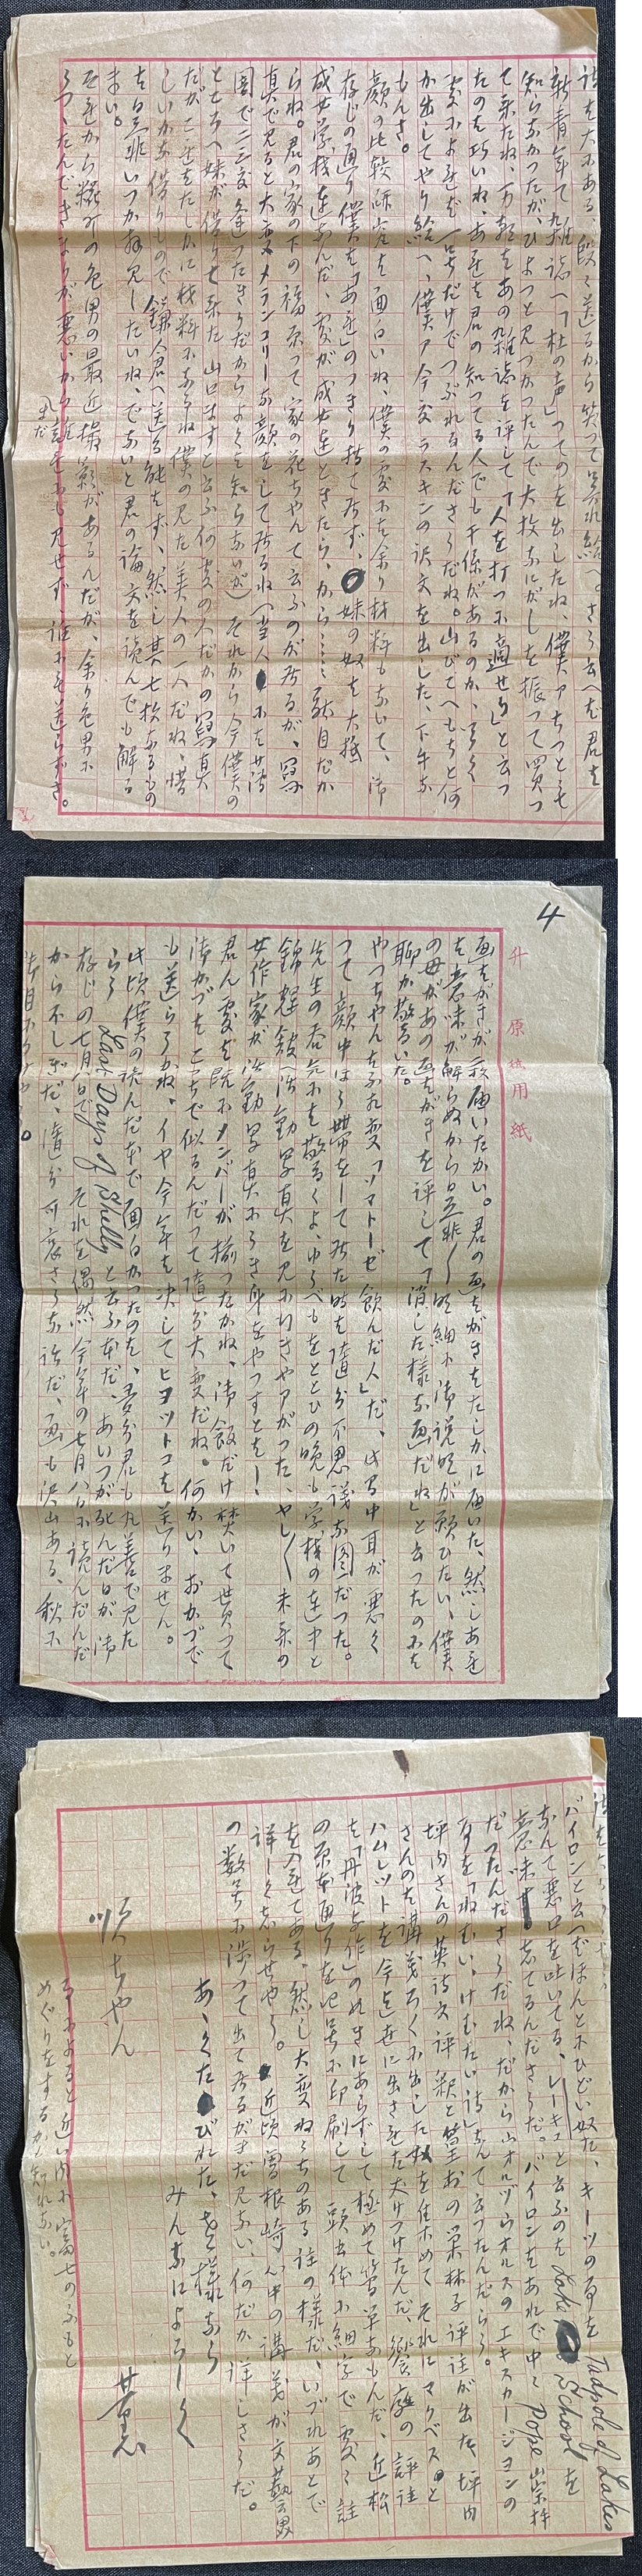 話は大にある、段々送るから笑つて呉れ給へ。さう云へば君は
新青年て雑誌へ「杜の声」つてのを出したね、僕アちつとも
知らなかつたが、ひよつと見つかつたんで大枚なにがしを振つて買つ
て来たね、万朝はあの雑誌を評して「人を打つに過ぎせり」と云つ
たのは巧いね、あれは君の知つてる人でも干係があるのか、
変によれば一号だけでつぶれるんださうだね。山びでへもちと何
か出してやり給へ、僕ア今度ラスキンの訳文を出した、下手な
もんさ。
顔の比較研究は面白いね、僕の処には余り材料もないて、御
存じの通り僕は「あれ」のつきり持て居ず、妹の奴は大抵
成女学校連なんだ、処が成女連ときたら、から……駄目だか
らね。君の家の下の福原つて家の花ちやんて云ふのが居るが、写
真で見ると大変メランコリーな顔をして居るね(当人には
園で二三度逢つたきりだからよくは知らないが)それから今僕の
ところへ妹が借りて来た山口ますと云ふ何処の人だかの写真
だがこれはたしかに材料になるね僕の見た美人の一人だね、惜
しいかな借りもので鎌人君へ送る能はず、然し其七枚あるもの
は是非いつか拝見したいね、でないと君の論文を読んでも解る
まい。
それから糀町の色男の最近撮影があるんだが、余り色男に
うつたんできまりが悪いからまだ誰にも見せず、誰にも送らずさ。
4
升 原稿用紙
画はがきが一枚届いたかい。君の画はがきはたしかに届いた、然しあれ
は意味が解らぬから是非〳〵明細に御説明が願ひたい、僕
の母があの画はがきを評して「消した様な画だね」と云つたのには
聊か驚ろいた。
やつちやんも不相変「ソマトーゼ飲んだ人」だ、此間中耳が悪く
つて顔中ほう帯をして居た時は随分不思議な図だつた。
先生の呑気にも驚ろくよ、ゆうべもをとゝひの晩も学校の連中と
錦輝館へ活動写真を見に行きやアがつた、ヤレ〳〵未来の
女作家が活動写真にうき身をやつすとは!、
君ん処は既にメンバーが揃つたかね、御飯だけ焚いて貰つて
御かづはこちで似るんだつて随分大変だね。何かい、おかづで
も送らうかね、イヤ今年は決してヒヨツトコは送りません。
此頃僕の読んだ本で面白かつたのは、多分君も丸善で見た
らう Last Days of Shelly と云ふ本だ、あいつが死んだ日が御
存じの七月八日で、それを偶然今年の七月八日に読んだんだ
から不しぎだ、随分可哀さうな話だ、画も沢山ある、秋に
バイロンと云へばほんとにひどい奴だ、キーツの事を Tadpole of Lakes
なんて悪口を吐いてる、レーキスと云ふのは Lake School を
意味してるんださうだ。バイロンはあれで中々 Pope 崇拝
だつたんださうだね、だから山オルヅウオルスのエキスカージヨンの
事を「ねむい、けむたい詩」なんて云つたんだらう。
坪内さんの英詩文評釈と篁村の巣林子評註が出た、坪内
さんのは講義ろくに出した奴を住木めて それにマクベスと
ハムレツトを今度世に出さをた丈けつけたんだ、饗庭の評註
は「丹波与作」の此きにあらずして極めて簡単なもんだ、近松
の原本通りを記号に印刷して 頭書体に細字で処々註
を入れてある。然し大変ねうちのある註の様だ、いづれあとで
詳しく志らせやう。近頃曽根崎心中の講義が文藝界
の数号に渉つて出て居るがまだ見ない、何だか詳しさうだ。
あゝくたびれた、左様なら
みんなによろしく
薫
順ちやん
事によると近い内に富士のふもと
めぐりをするかも知れない。